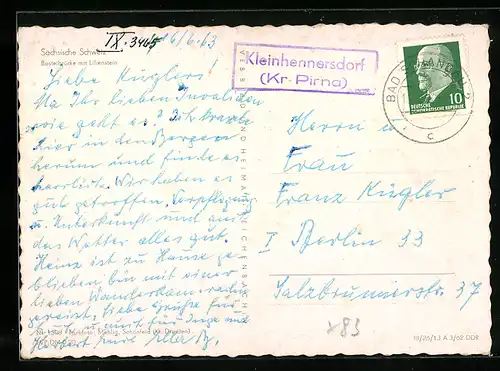 IX. 3465
16/6.63
Sächsische Schweiz
Basteibrücke mit Lilienstein
Kleinhennersdorf
(Kr. Pirna)
BAD
c
10
DEUTSCHE
DEMOKRATISCHE REPUBLIK
Liebe Kuglers!
Na Ihr lieben Invaliden
wie geht es? Ich
hier in den Bergen
herum und finde es
herrlich. Wir haben es
gut getroffen, Verpflegung
u. Unterkunft und auch
das Wetter alles gut.
Heinz ist zu Hause ge-
blieben, bin mit einer
lieben
gereist. Liebe Grüße für
Euch u. auch für Inge und
Herbert Eure
Herrn u.
Frau
Franz Kugler
I Berlin 33
Salzbrunnerstr. 37
x83
19/26/13 A 3/62 DDR